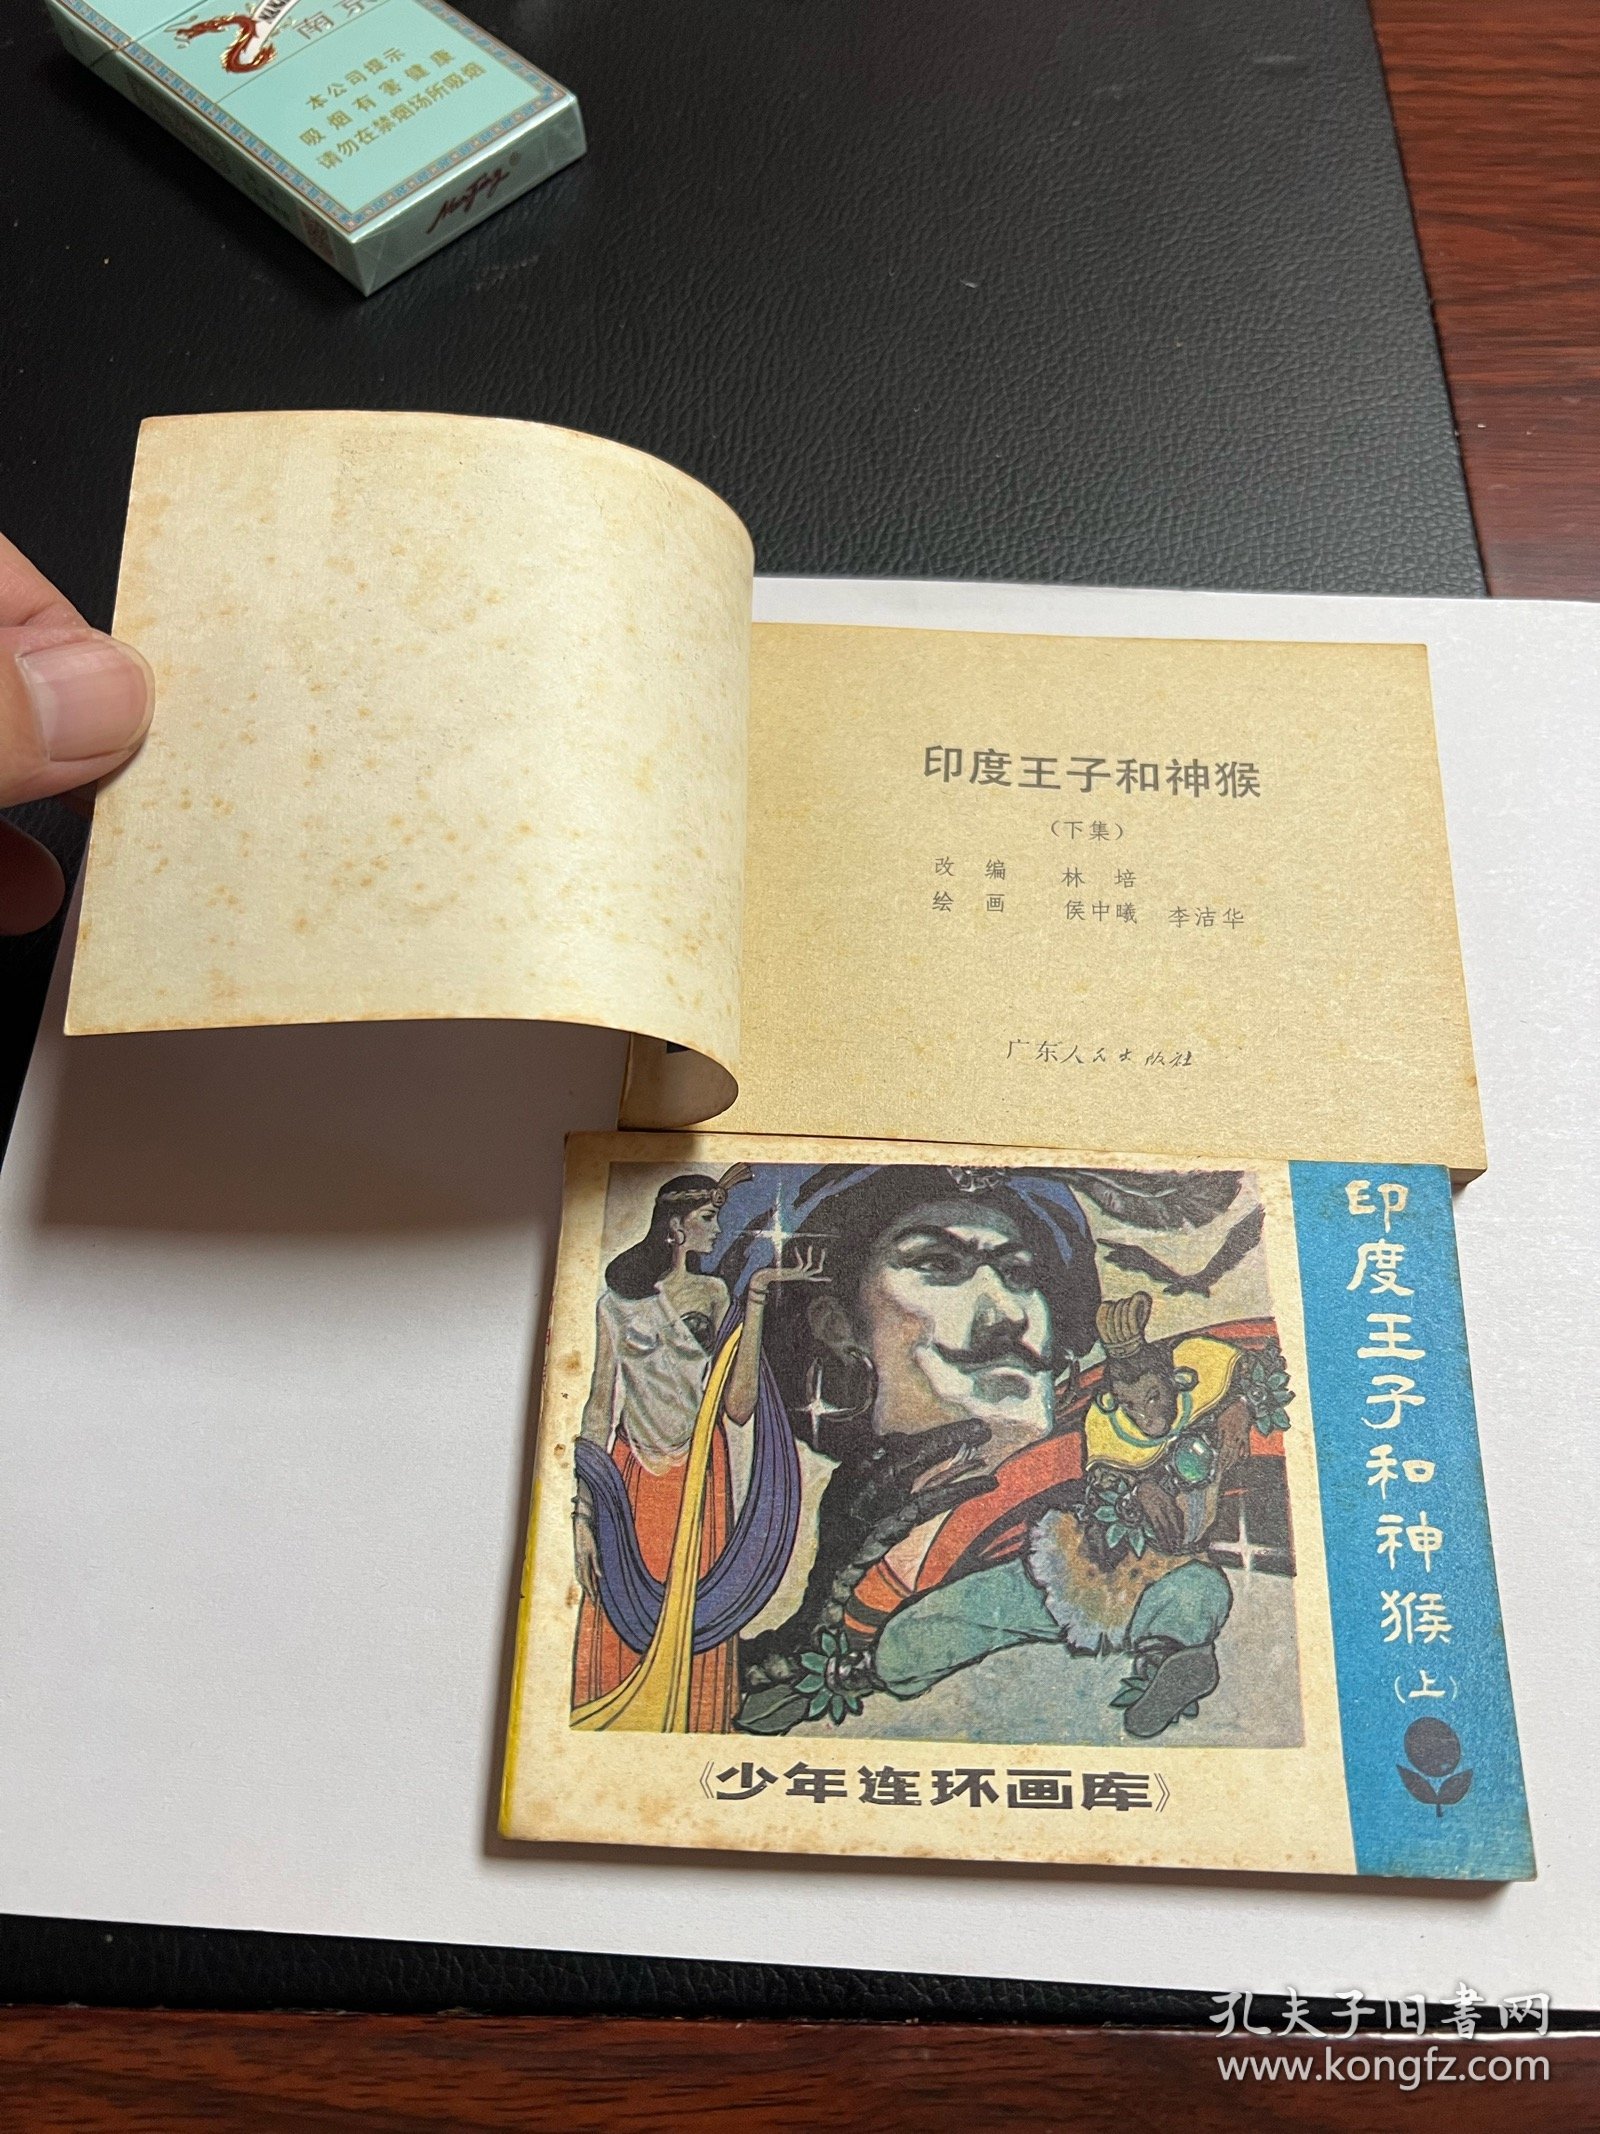 南京
本公司提示
吸烟有害健康
请勿在禁烟场所吸烟
NanJing®
印度王子和神猴
（下集）
改编 林培
绘画 侯中曦 李洁华
广东人民出版社
印度王子和神猴（上）
《少年连环画库》
孔夫子旧书网
www.kongfz.com